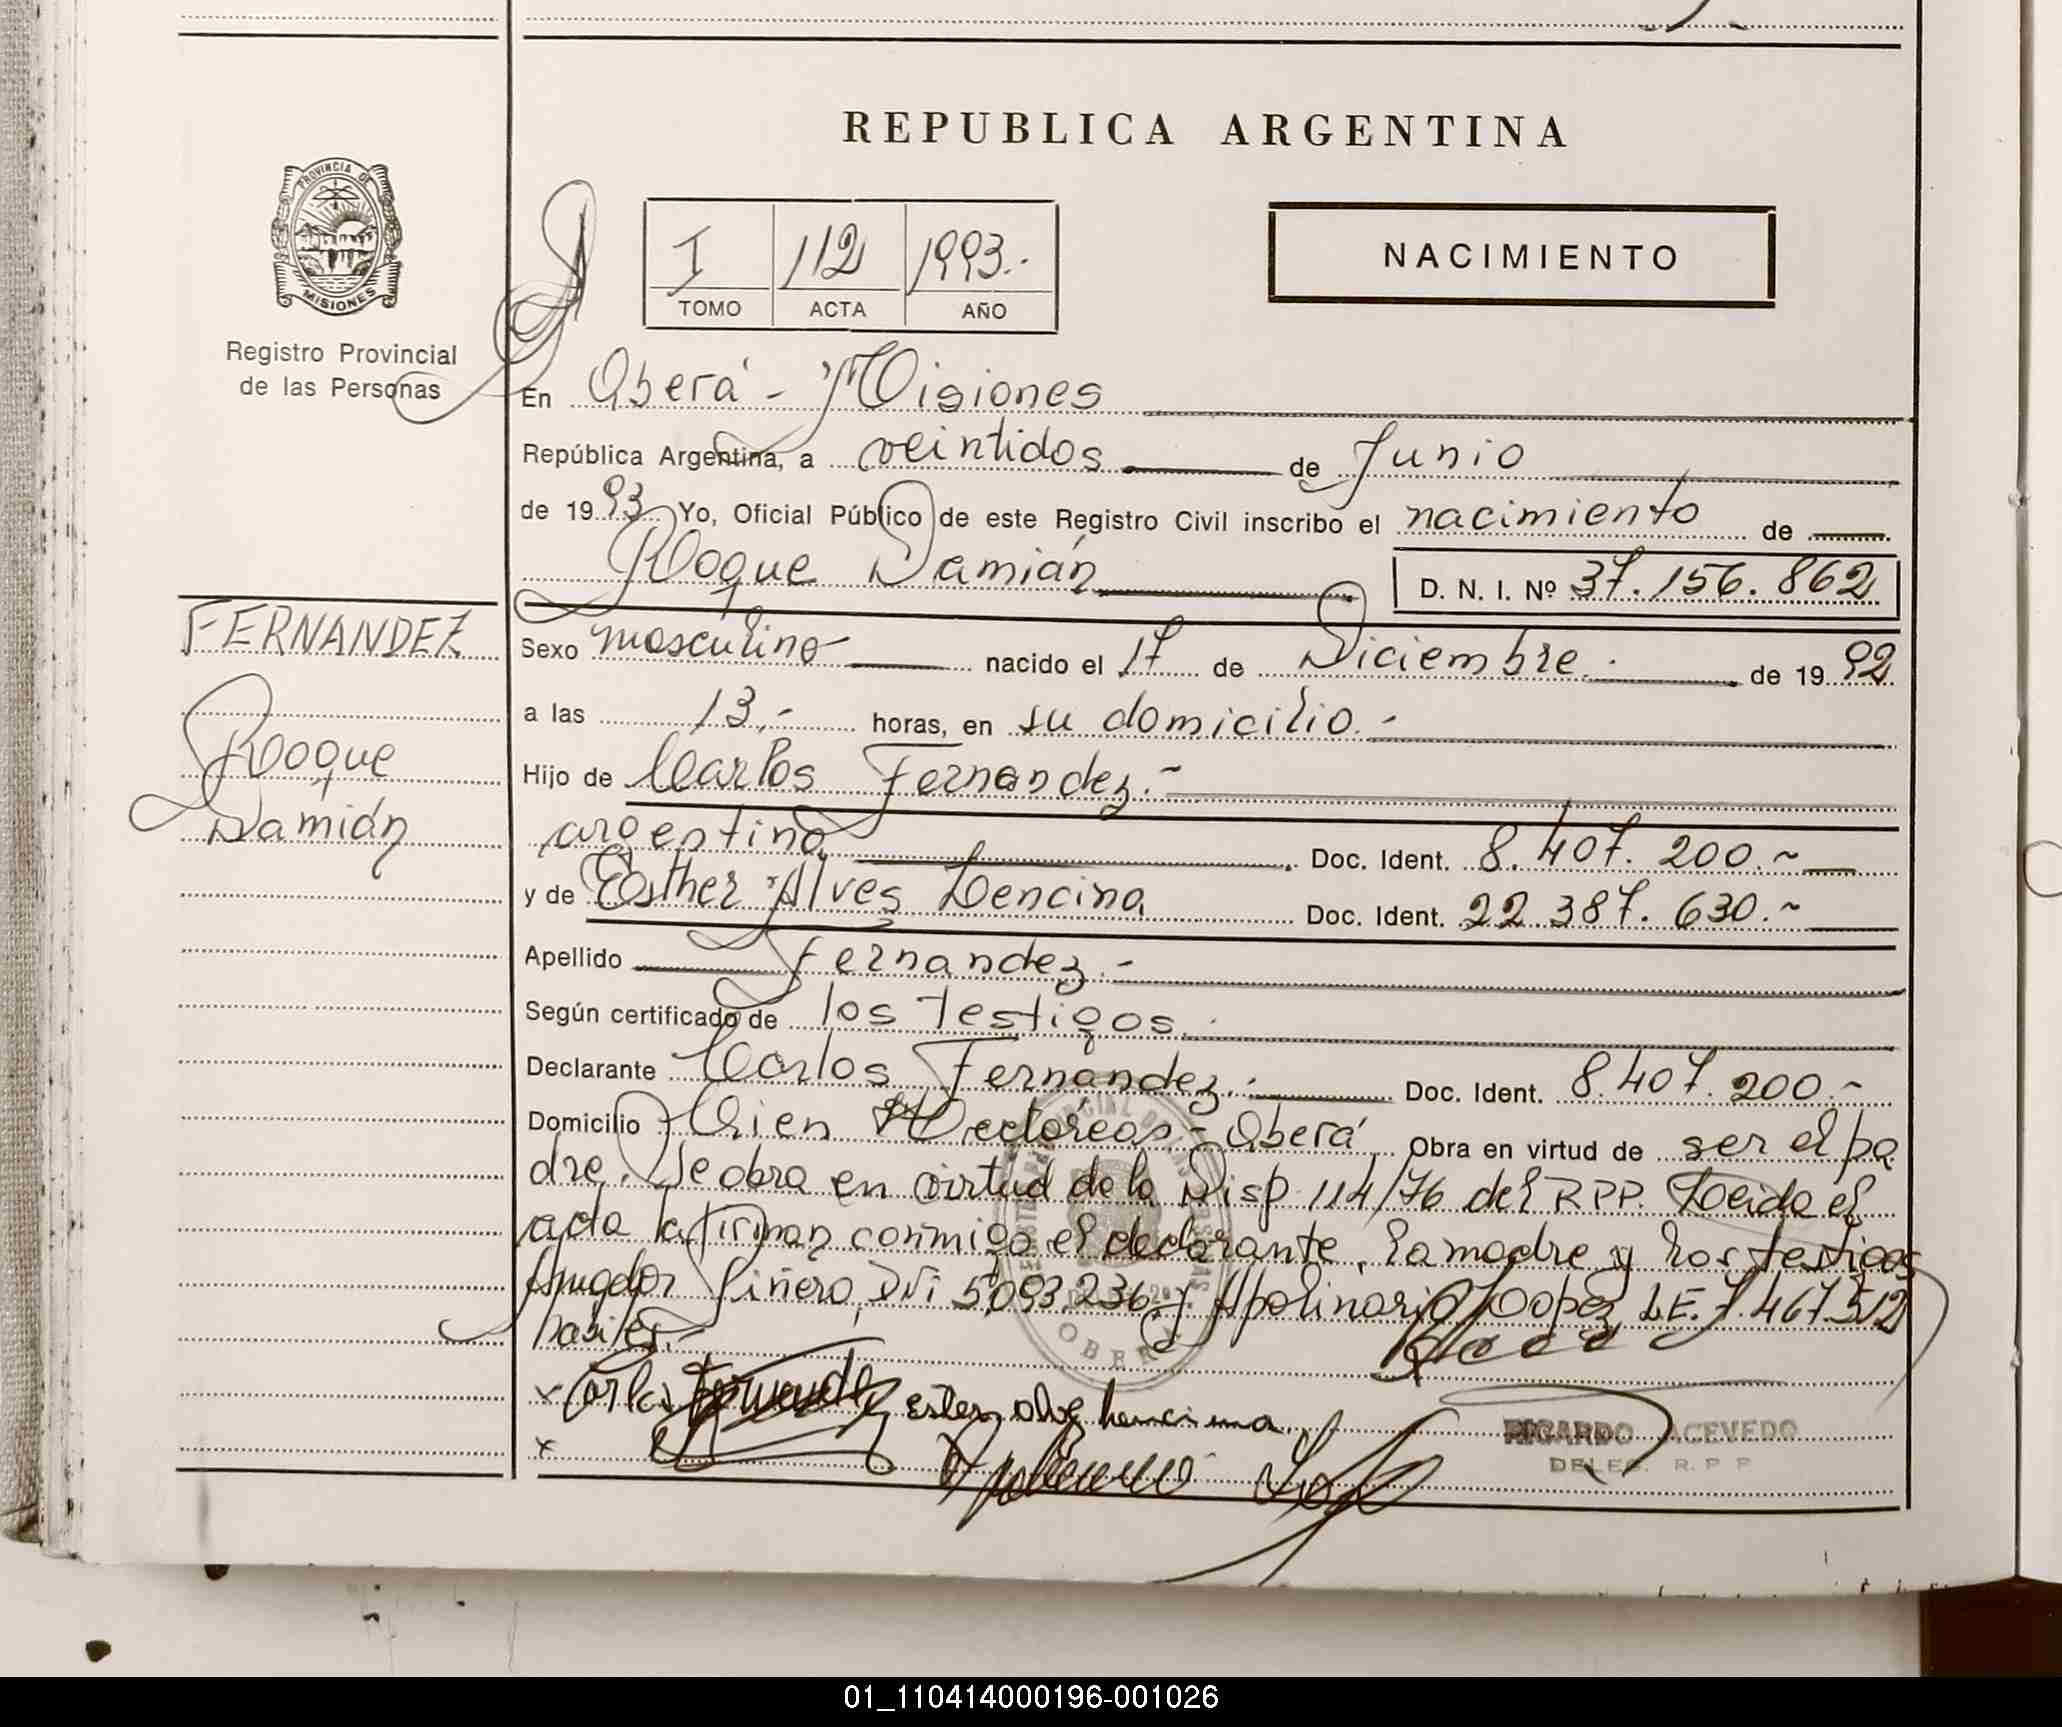 REPUBLICA ARGENTINA
PROVINCIA DE
MISIONES
Registro Provincial
de las Personas
I 112 1993.-
TOMO ACTA AÑO
NACIMIENTO
En Oberá - Misiones
República Argentina, a veintidos de Junio
de 1993 Yo, Oficial Público de este Registro Civil inscribo el nacimiento de
Roque Damián D. N. I. Nº 37.156.862
FERNANDEZ
Roque
Damián
Sexo masculino nacido el 17 de Diciembre.- de 1992
a las 13.- horas, en su domicilio.-
Hijo de Carlos Fernandez.-
argentino Doc. Ident. 8.407.200.-
y de Esther Alves Lencina Doc. Ident. 22.387.630.-
Apellido Fernandez.-
Según certificado de los Testigos.-
Declarante Carlos Fernandez.- Doc. Ident. 8.407.200.-
Domicilio Cien Hectáreas - Oberá Obra en virtud de ser el pa
dre. Se obra en virtud de la Disp. 114/76 del R.P.P. Leida el
acta la firman conmigo el declarante, la madre y los testigos
Piñero, DNi 5.093.236 y Apolinario Lopez L.E. 7.467.512
habiles.-
x Carlos Fernandez ester alvez lencina
x
RICARDO ACEVEDO
DELEG. R. P. P
OBERA
01_110414000196-001026